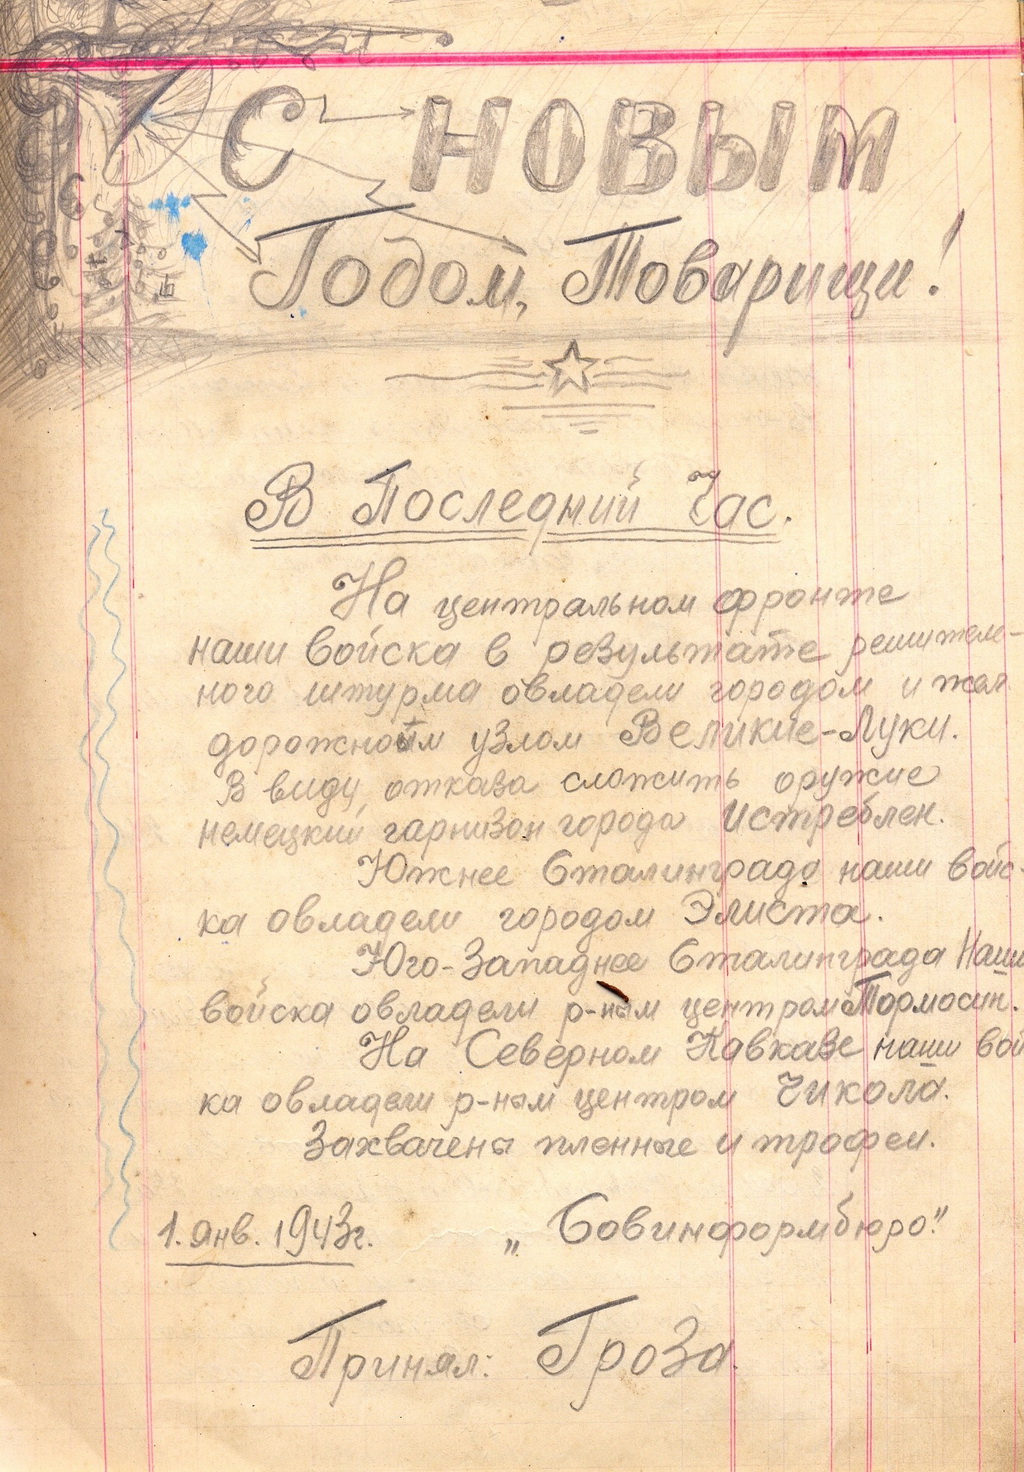 С НОВЫМ
Годом, Товарищи!
В Последний Час.
На центральном фронте
наши войска в результате решитель-
ного штурма овладели городом и жел
дорожным узлом Великие-Луки.
В виду отказа сложить оружие
немецкий гарнизон города истреблен.
Южнее Сталинграда наши войс-
ка овладели городом Элиста.
Юго-Западнее Сталинграда Наши
войска овладели р-ным центром Тормосин.
На Северном Кавказе наши вой
ка овладели р-ным центром Чикола.
Захвачены пленные и трофеи.
1. янв. 1943г. „Совинформбюро."
Принял: Гроза.